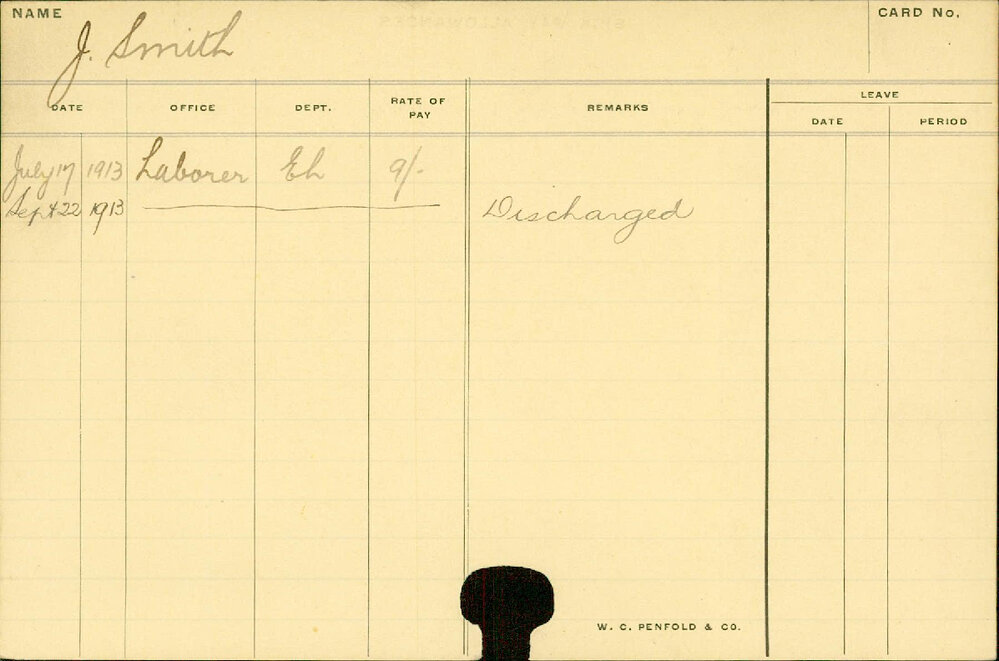 NAME J. Smith CARD No.
DATE OFFICE DEPT. RATE OF PAY REMARKS LEAVE
DATE PERIOD
July 17 1913 Laborer Eh 9/-
Sept 22 1913 Discharged
W. C. PENFOLD & CO.